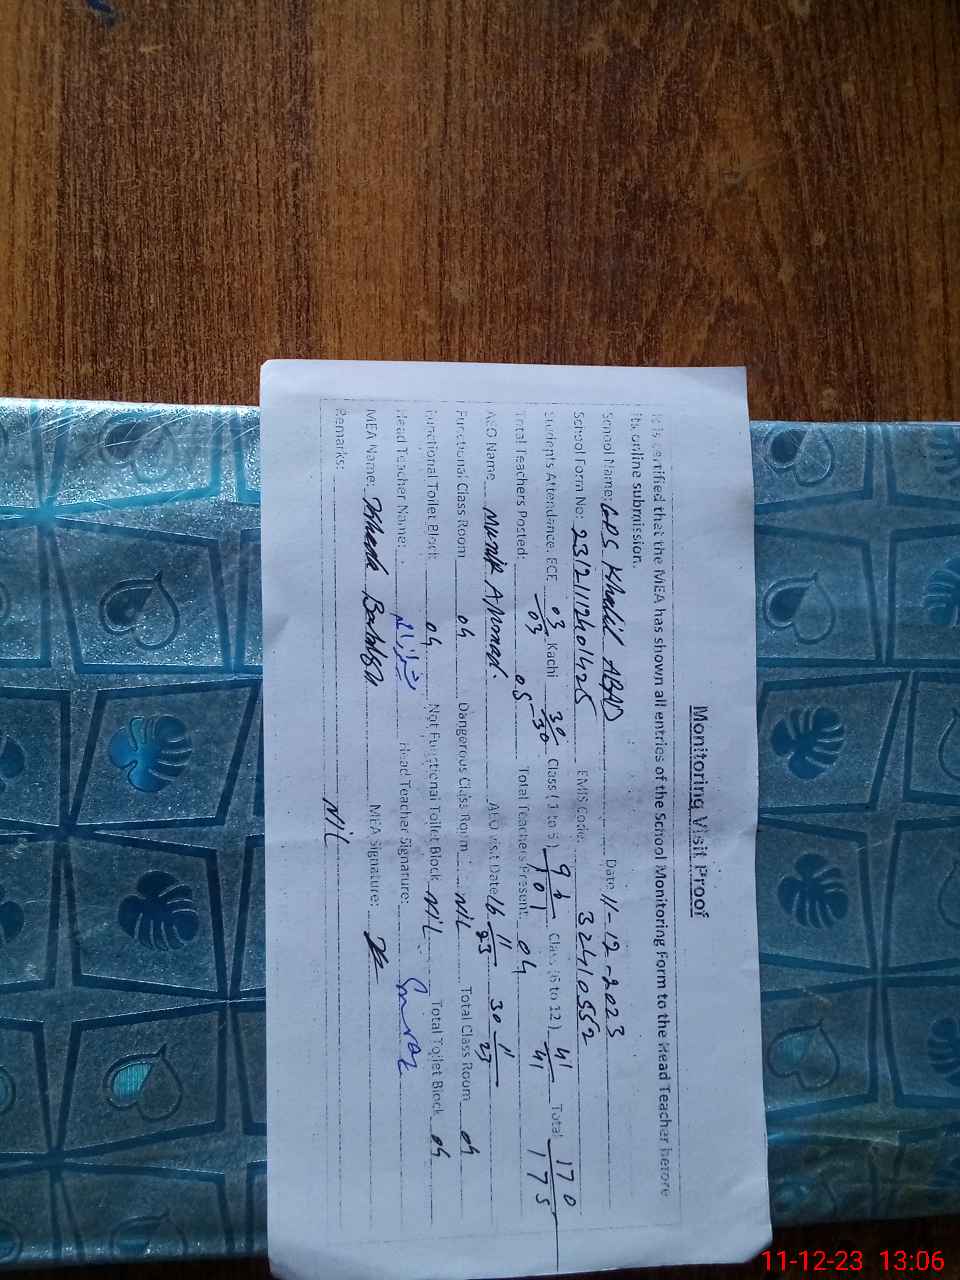 Monitoring Visit Proof
It is certified that the MEA has shown all entries of the School Monitoring Form to the Head Teacher before
its online submission.
School Name: GPS Khalil ABAD Date: 11-12-2023
School Form No: 23121112401425 EMIS Code: 32410552
Students Attendance: ECE 03/03 Kachi 30/30 Class (1 to 5) 96/101 Class (6 to 12) 41/41 Total 170/175
Total Teachers Posted: 05 Total Teachers Present: 04
AEO Name Munir Ahmad. AEO Visit Date 16 11/23 30 11/23
Functional Class Room 04 Dangerous Class Room: NIL Total Class Room 04
Functional Toilet Block 04 Not Functional Toilet Block NIL Total Toilet Block 04
Head Teacher Name: Head Teacher Signature:
MEA Name: MEA Signature:
Remarks: NIL
11-12-23 13:06